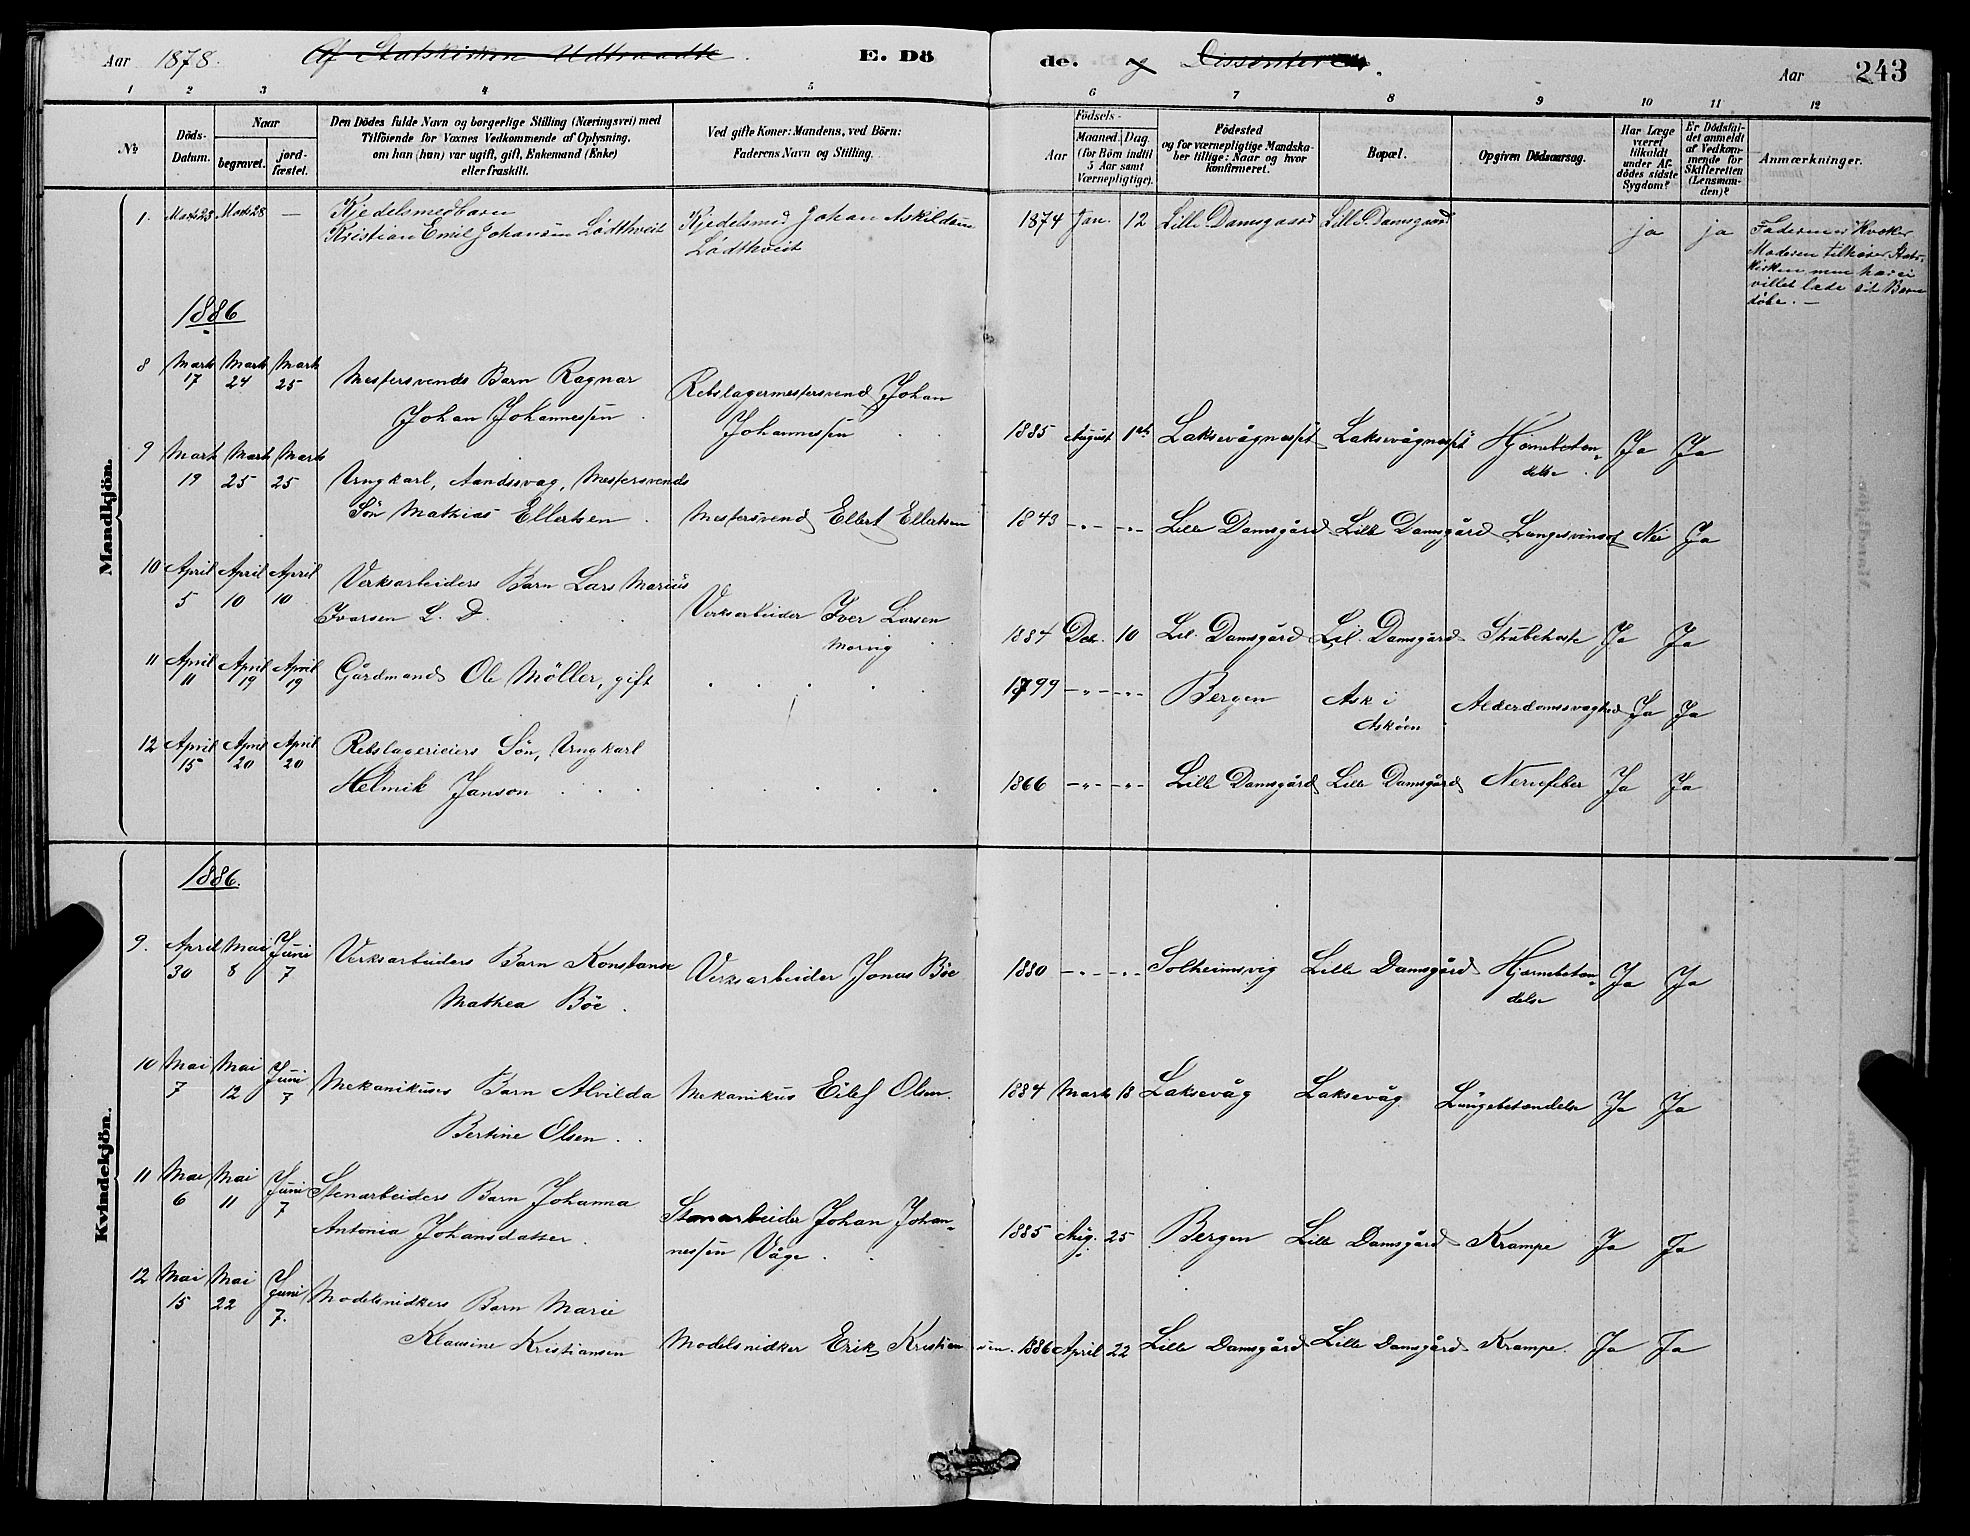 Aar 1878. Af Statskirken Udtraadte E. Dö de. og Dissentere. Aar 243
1 2 3 4 5 6 7 8 9 10 11 12
No
Döds-Datum.
Naar
begravet.
jord-fæstet.
Den Dödes fulde Navn og borgerlige Stilling (Næringsvei) med
Tilföiende for Voxnes Vedkommende af Oplysning,
om han (hun) var ugift, gift, Enkemand (Enke)
eller fraskilt.
Ved gifte Koner: Mandens, ved Börn:
Faderens Navn og Stilling.
Födsels-
Aar
Maaned. Dag.
(for Börn indtil
5 Aar samt
Værnepligtige).
Födested
og for værnepligtige Mandska-
ber tillige: Naar og hvor
konfirmeret.
Bopæl.
Opgiven Dödsaarsag.
Har Læge
været
tilkaldt
under Af-
dödes sidste
Sygdom?
Er Dödsfal-
det anmeldt
af Vedkom-
mende for
Skifteretten
(Lensman-
den)?
Anmærkninger.
Mandkjön.
1. Marts 23 Marts 28 — Kjedelsmedbarn
Kristian Emil Johansen Lödthveit
Kjedelsmed Johan Askildsen
Lödthveit
1874 Jan. 12 Lille Damsgaard Lille Damsgaard ja ja
Faderen er Kvæker
Moderen tilhører Stats-
kirken men har ei
villet lade sit Barn
döbe. —
1886
8 Marts 17 Marts 24 Marts 25 Mestersvends Barn Ragnar
Johan Johannessen
Rebslagermestersvend Johan
Johannessen
1885 August 1ste Laksevågnæsset Laksevågnæsset Hjernebeten-
delse Ja Ja
9 Marts 19 Marts 25 Marts 25 Ungkarl, Aandssvag, Mestersvends
Sön Mathias Ellertsen
Mestersvend Ellert Ellertsen
1843 -"- -"- Lille Damsgård Lille Damsgård Lungesvinsot Nei Ja
10 April 5 April 10 April 10 Verksarbeiders Barn Lars Marius
Ivarsen L. D.
Verksarbeider Iver Larsen
Morvig
1884 Dec. 10 Lil. Damsgård Lil. Damsgård Strubehoste Ja Ja
11 April 11 April 19 April 19 Gårdmand Ole Möller, gift
1799 -"- -"- Bergen Ask i
Asköen Alderdomssvaghed Ja Ja
12 April 15 April 20 April 20 Rebslagerieiers Sön, Ungkarl
Helmik Janson
1866 -"- -"- Lille Damsgård Lille Damsgård Nervefeber Ja Ja
Kvindekjön.
1886.
9. April 30 Mai 8 Juni 7 Verksarbeiders Barn Konstanse
Mathea Böe.
Verksarbeider Jonas Böe
1880 -"- -"- Solheimsvig Lille Damsgård Hjernebeten-
delse Ja Ja
10 Mai 7 Mai 12 Juni 7 Mekanikuses Barn Alvilda
Bertine Olsen
Mekanikus Eilef Olsen.
1884 Marts 18 Laksevåg Laksevåg Lungebetændelse Ja Ja
11 Mai 6 Mai 11 Juni 7 Stenarbeiders Barn Johanna
Antonia Johansdatter.
Stenarbeider Johan Johan-
nessen Våge.
1885 Aug. 25 Bergen Lille Damsgård Krampe Ja Ja
12 Mai 15 Mai 22 Juni 7. Modelsnidkers Barn Marie
Klausine Kristiansen
Modelsnidker Erik Kristiansen.
1886 April 22 Lille Damsgård Lille Damsgård Krampe. Ja Ja